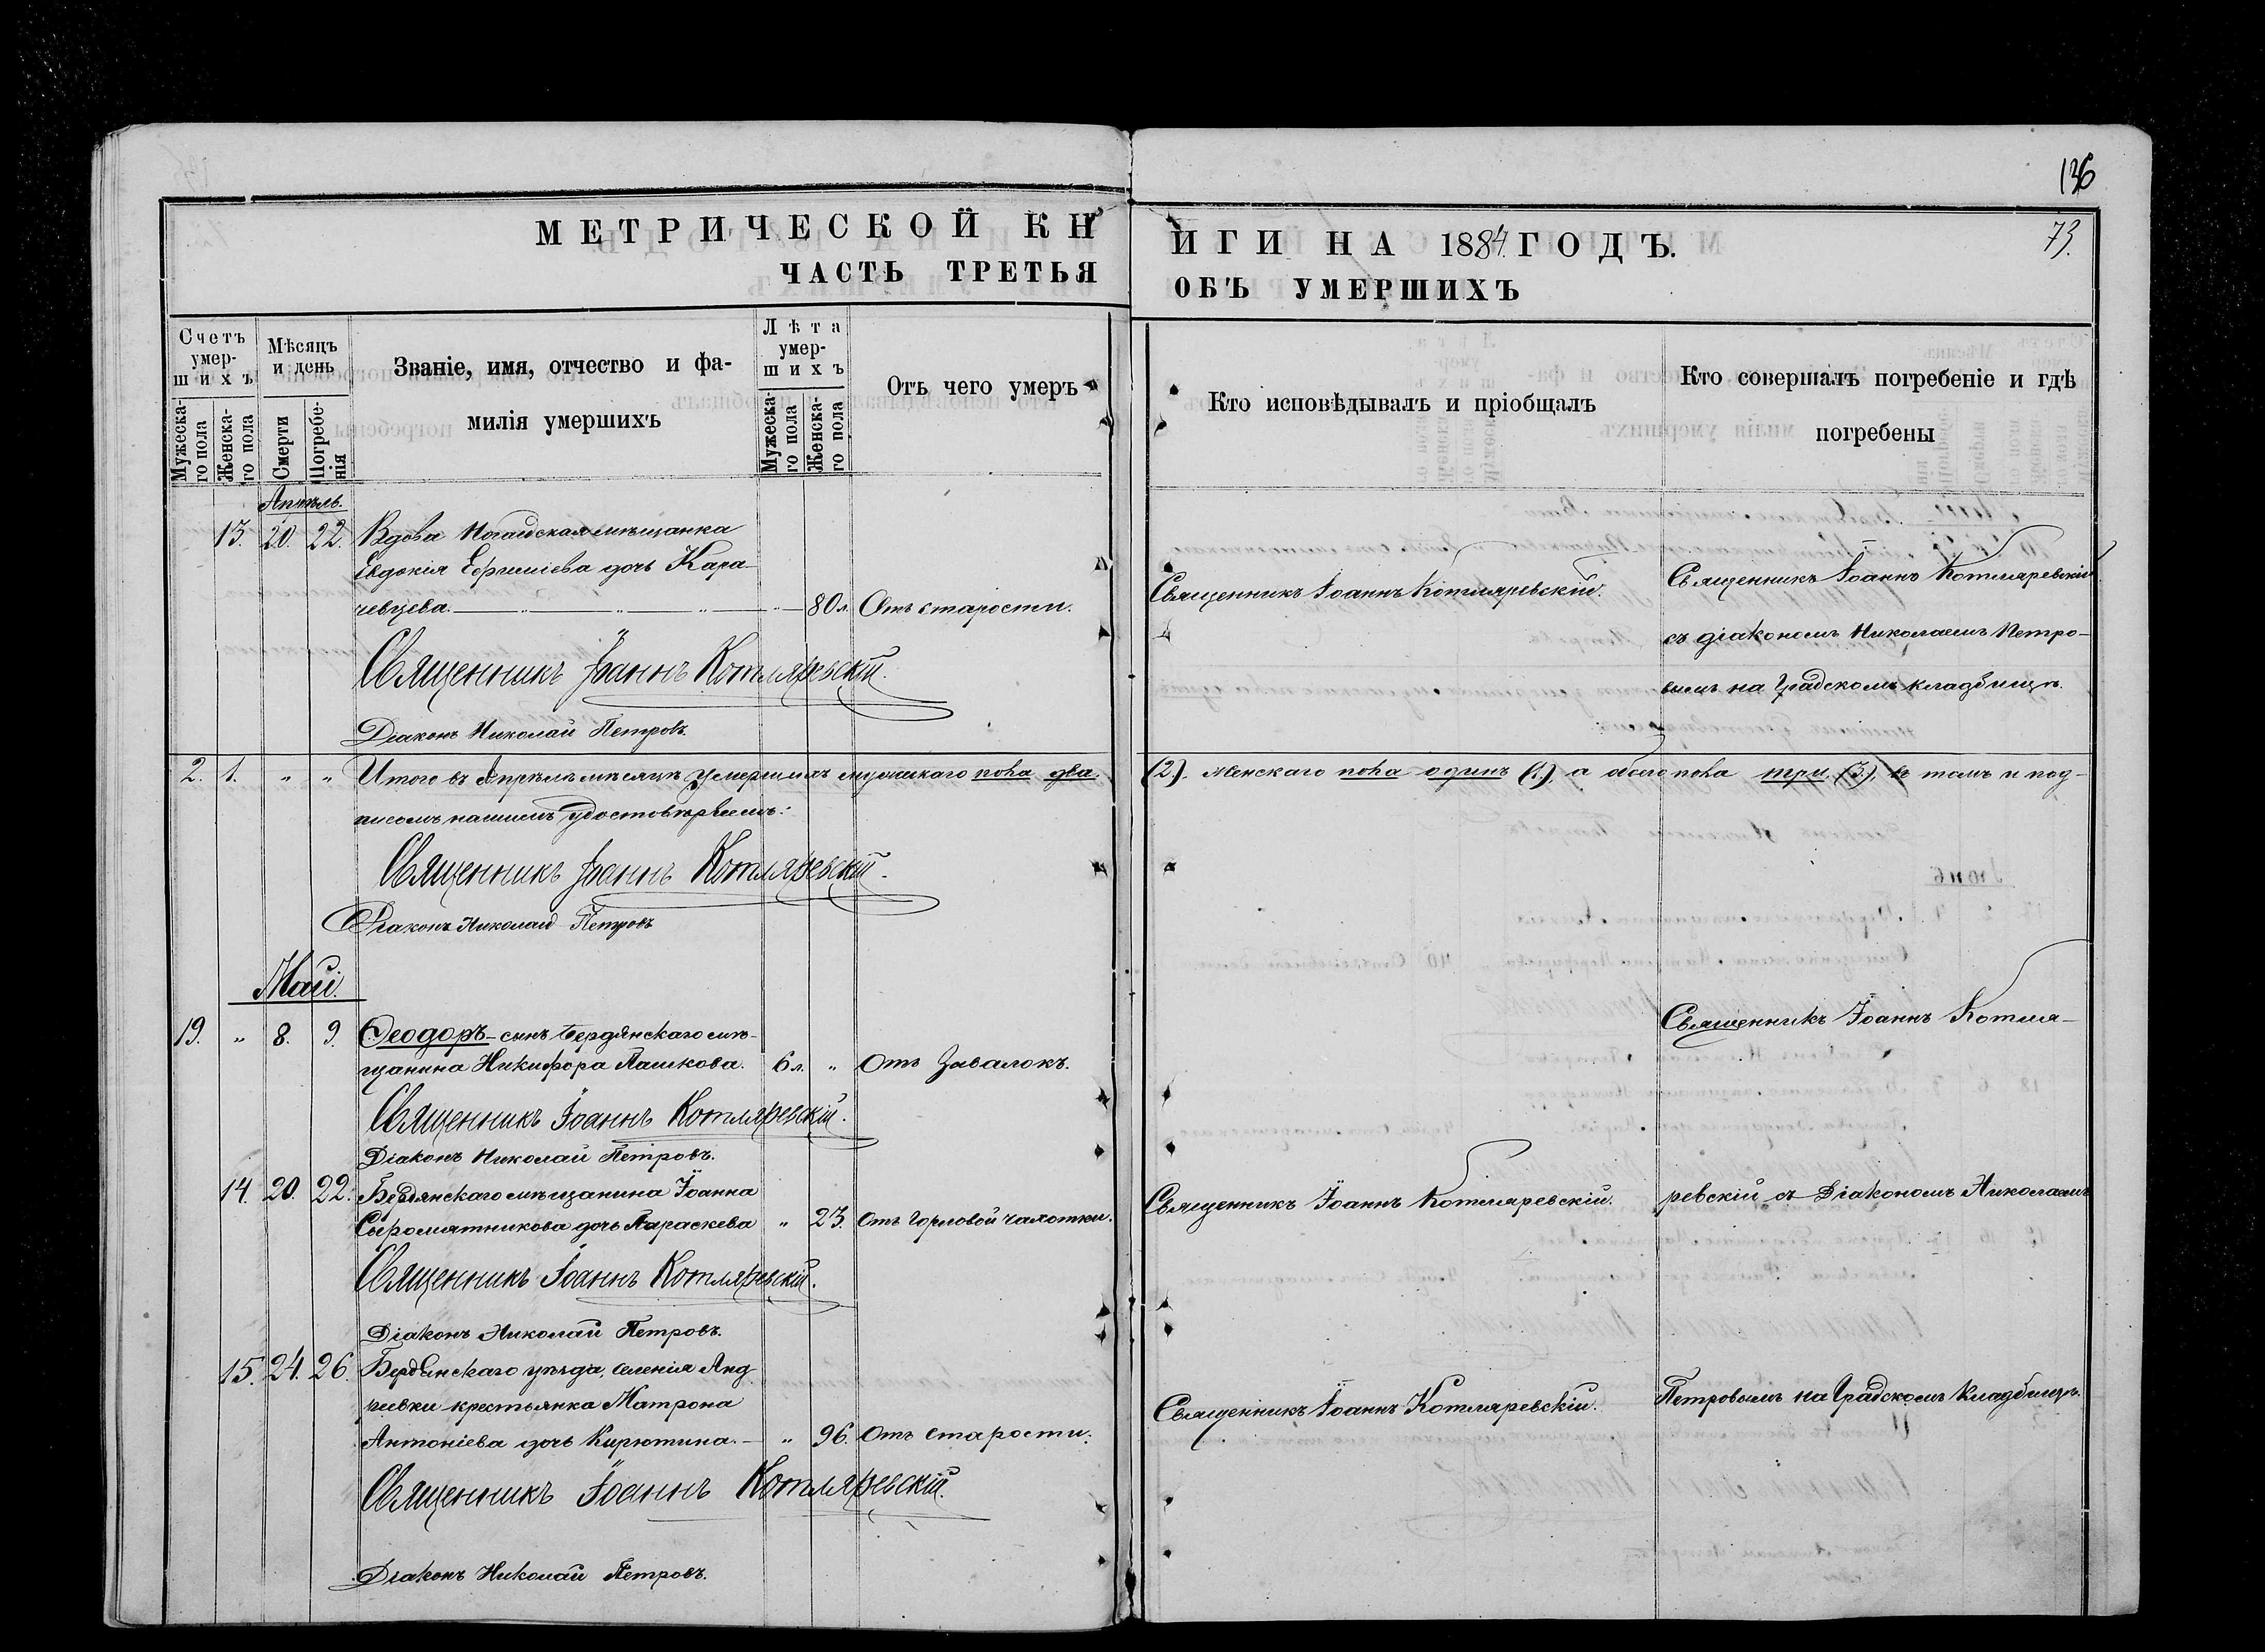 136
МЕТРИЧЕСКОЙ КНИГИ НА 1884 ГОДЪ.
73.
ЧАСТЬ ТРЕТЬЯ ОБЪ УМЕРШИХЪ
Счетъ умер-
шихъ
Мужеска-
го пола
Женска-
го пола
Мѣсяцъ
и день
Смерти
Погребе-
нія
Званіе, имя, отчество и фа-
милія умершихъ
Лѣта
умер-
шихъ
Мужеска-
го пола
Женска-
го пола
Отъ чего умеръ
Кто исповѣдывалъ и пріобщалъ
Кто совершалъ погребеніе и гдѣ
погребены
Апрѣль.
13. 20. 22. Вдова Ногайская мѣщанка
Евдокія дочь Кара-
чевцева. 80 л. Отъ старости.
Священникъ Іоаннъ Котляревскій.
Священникъ Іоаннъ Котляревскій
съ діакономъ Николаемъ Петро-
вымъ на Градскомъ кладбищѣ.
Священникъ Іоаннъ Котляревскій.
Діаконъ Николай Петровъ.
2. 1. " " Итого въ Апрѣлѣ мѣсяцѣ умершихъ мужескаго пола два. (2). женскаго пола одинъ (1). а обоего пола три (3), въ томъ и под-
писомъ нашимъ удостовѣряемъ:
Священникъ Іоаннъ Котляревскій.
Діаконъ Николай Петровъ
Май.
19. " 8. 9. Ѳеодоръ - сынъ Бердянскаго мѣ-
щанина Никифора Пашкова. 6 л. " Отъ Завалокъ.
Священникъ Іоаннъ Котля-
Священникъ Іоаннъ Котляревскій.
Діаконъ Николай Петровъ.
14. 20. 22. Бердянскаго мѣщанина Іоанна
Сыромятникова дочь Параскева " 23. Отъ Горловой чахотки.
Священникъ Іоаннъ Котляревскій.
ревскій съ Діакономъ Николаемъ
Священникъ Іоаннъ Котляревскій.
Діаконъ Николай Петровъ.
15. 24. 26. Бердянскаго уѣзда, селенія Анд
реевки крестьянка Матрона
Антоніева дочь Кирютина. - " 96. Отъ старости.
Священникъ Іоаннъ Котляревскій.
Петровымъ на Градскомъ Кладбищѣ.
Священникъ Іоаннъ Котляревскій.
Діаконъ Николай Петровъ.